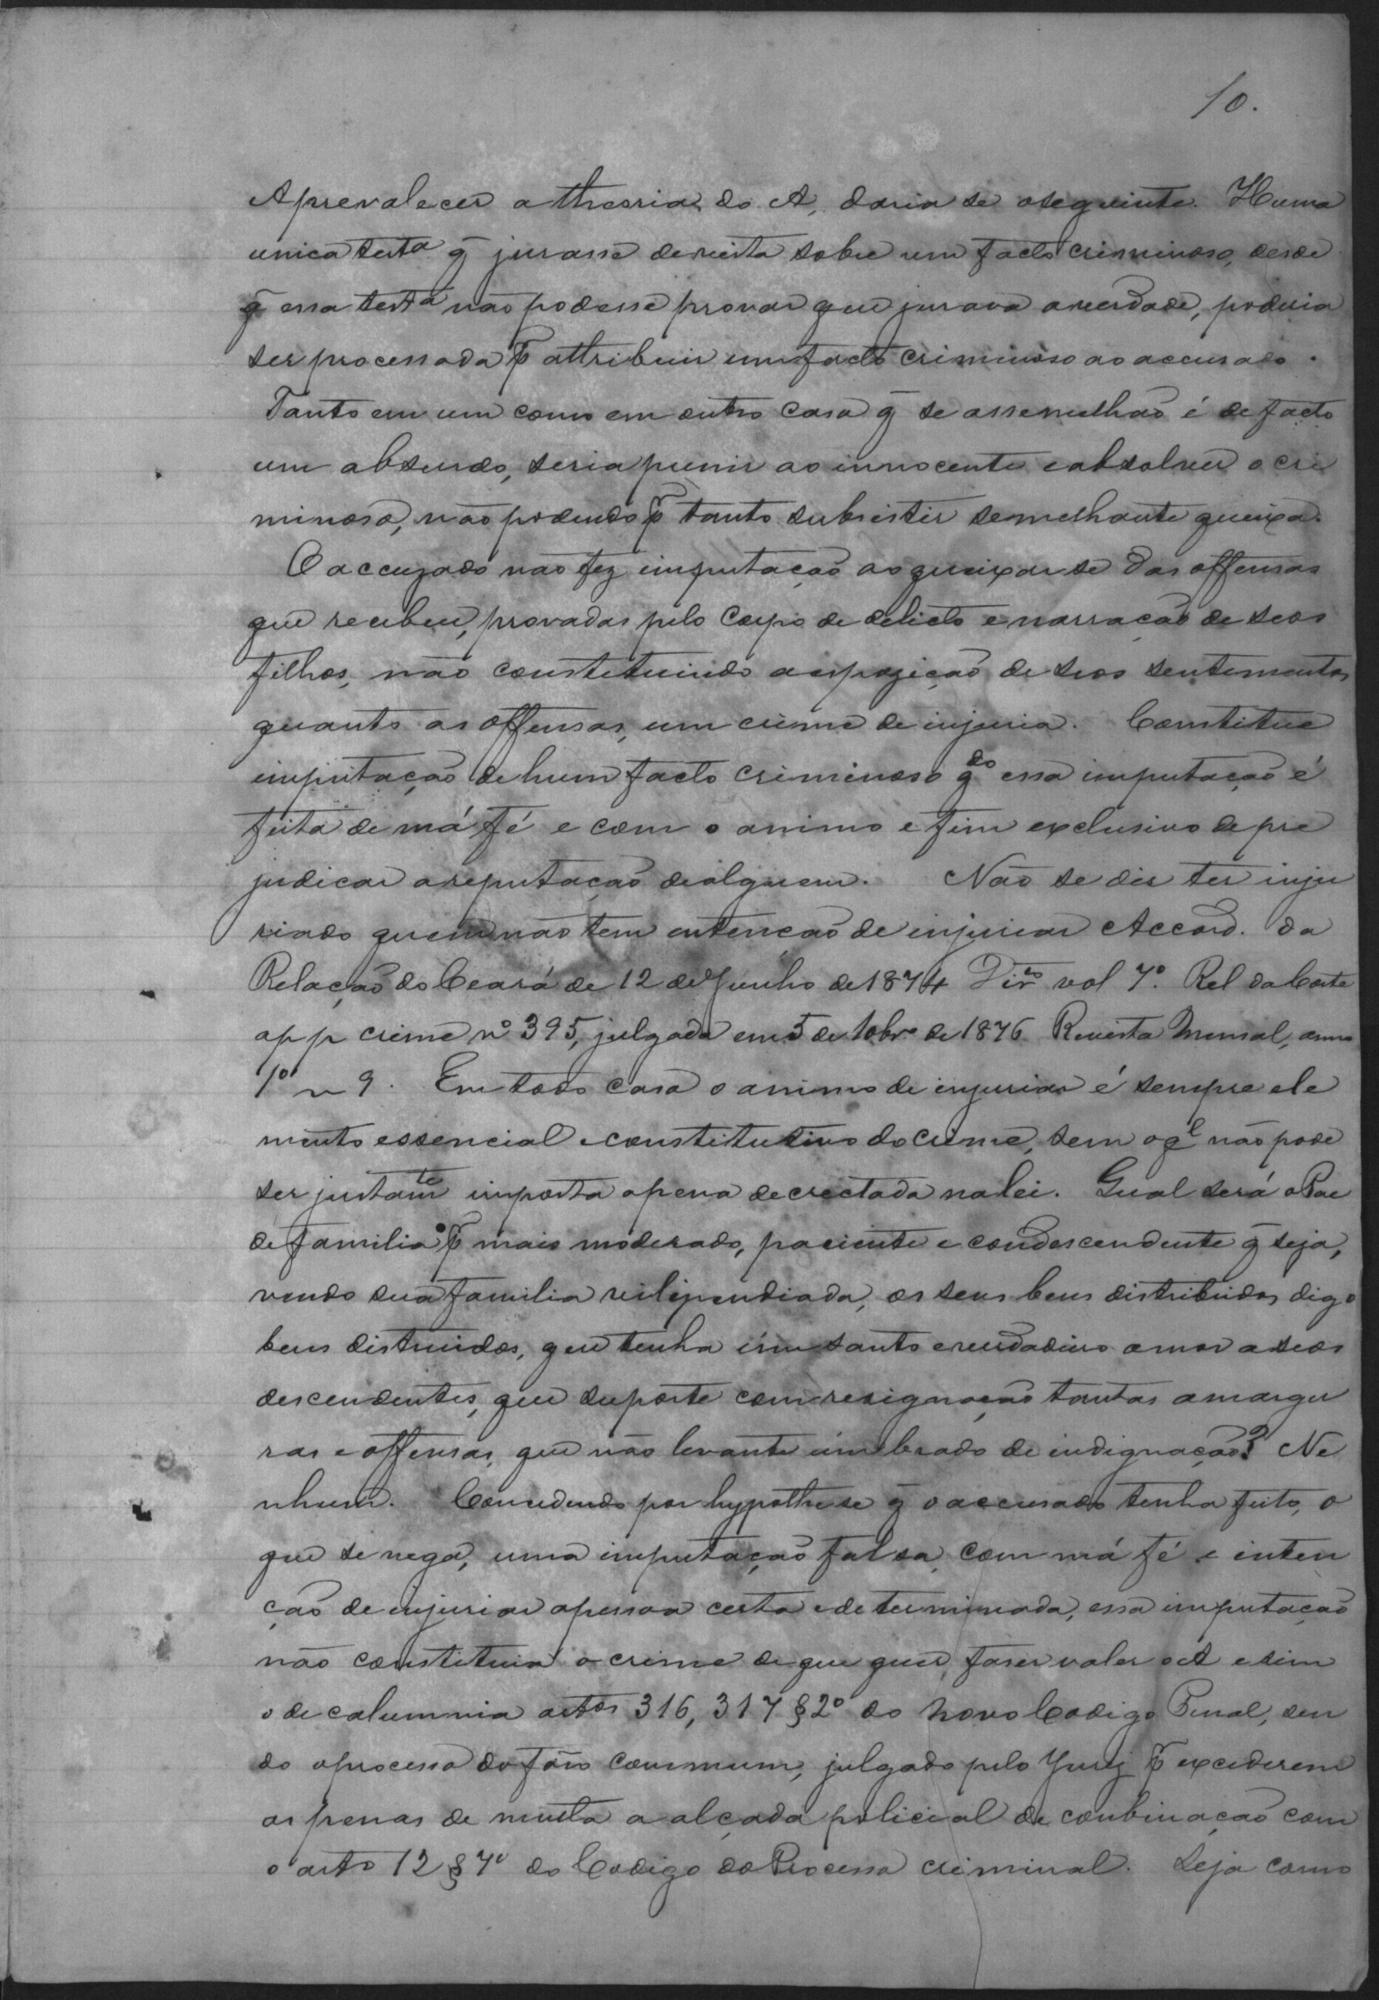 10.
A prevalecer a theoria do A, daria se o seguinte. Huma
unica testª q̄ jurasse de vista sobre um facto criminoso, desde
q̄ essa testª não podesse provar que jurava a verdade, poderia
ser processada p̄ attribuir um facto criminoso ao accusado.
Tanto em um como em outro caso q̄ se assemelhão é de facto
um absurdo, seria punir ao innocente e absolver o cri
minoso, não podendo p̄ tanto subsistir semelhante queixa.
O accuzado não fez imputação ao queixar se das offensas
que recebeu, provadas pelo corpo de delicto e narração de seos
filhos, não constituindo a expozição de seos sentimentos
quanto as offensas, um crime de injuria. Constitue
imputação de hum facto criminoso q̄do essa imputação é
feita de má fé e com o animo e fim exclusivo de pre
judicar a reputação de alguem. Não se diz ter inju
riado quem não tem intenção de injuriar Accord. da
Relação do Ceará de 12 de Junho de 1874 Dirto vol 7º. Rel da Corte
app crime nº 395, julgada em 5 de 10brº de 1876 Revista Mensal, anno
1º n 9. Em todo caso o animo de injuriar é sempre ele
mento essencial e constitutivo do crime, sem o ql não pode
ser justamte imposta a pena decrectada na lei. Qual será o Pae
de familia p̄ mais moderado, paciente e condescendente q̄ seja,
vendo sua familia vilipendiada, os seus bens distribuidos digo
bens distruidos, que tenha um santo e verdadeiro amor a seos
descendentes, que suporte com resignação tantas amargu
ras e offensas, que não levante um brado de indignação? Ne
nhum. Concedendo por hypothese q̄ o accusado tenha feito, o
que se nega, uma imputação falsa, com má fé e inten
ção de injuriar a pessoa certa e determinada, essa imputação
não constituia o crime de que quer fazer valer o A e sim
o de calumnia artos 316, 317 § 2º do novo Codigo Penal, sen
do o processo do fôro commum, julgado pelo Jury p̄ excederem
as penas de multa a alçada policial de conbinação com
o arto 12 § 7º do Codigo do Processo criminal. Seja como